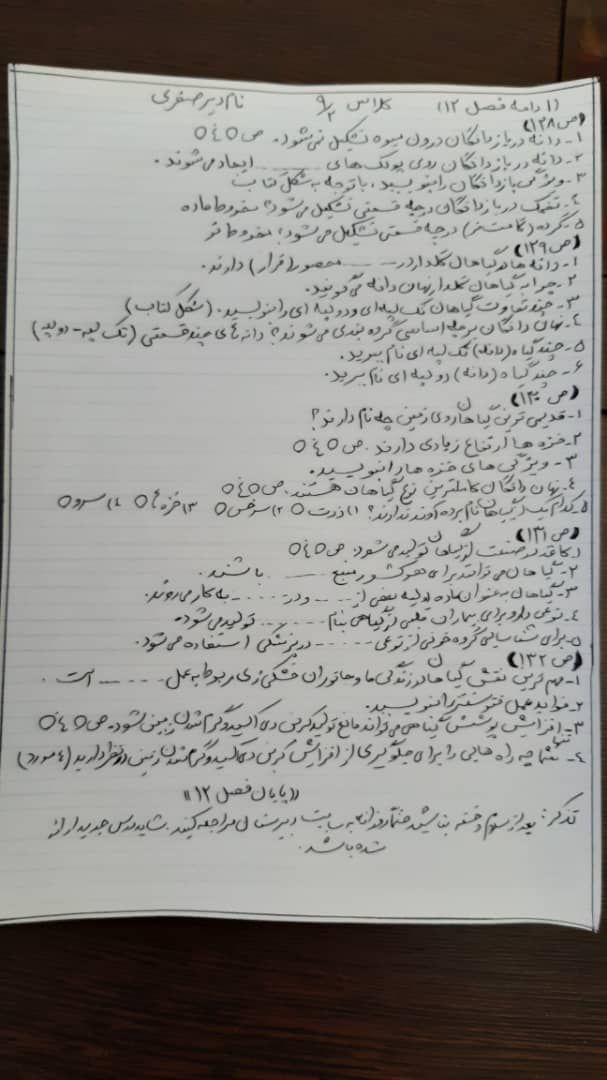 (ادامه فصل ۱۲) کلاس ۹/۲ نام دبیر صفری
(ص ۱۲۸)
۱- دانه در بازدانگان درون میوه تشکیل نمی‌شود. ص ○ غ ○
۲- دانه در بازدانگان روی پولک های ...... ایجاد می‌شوند.
۳- ویژگی بازدانگان را بنویسید، با توجه به شکل کتاب
۴- تخمک در بازدانگان در چه قسمتی تشکیل می‌شود؟ مخروط ماده
۵- گرده (گامت نر) در چه قسمتی تشکیل می‌شود؟ مخروط نر
(ص ۱۲۹)
۱- دانه ها در گیاهان گلدار در ...... محصور (قرار) دارند.
۲- چرا به گیاهان گلدار نهان دانه می گویند.
۳- چند تفاوت گیاهان تک لپه ای و دو لپه ای را بنویسید. (شکل کتاب)
۴- نهان دانگان بر چه اساسی گروه بندی می‌شوند؟ دانه های چند قسمتی (تک لپه - دو لپه)
۵- چند گیاه (دانه) تک لپه ای نام ببرید.
۶- چند گیاه (دانه) دو لپه ای نام ببرید.
(ص ۱۳۰)
۱- قدیمی ترین گیاهان روی زمین چه نام دارند؟
۲- خزه ها ارتفاع زیادی دارند. ص ○ غ ○
۳- ویژگی های خزه ها را بنویسید.
۴- نهان دانگان کاملترین نوع گیاهان هستند. ص ○ غ ○
۵- کدام یک از گیاهان نام برده آوند ندارند؟ ۱) ذرت ○ ۲) سرخس ○ ۳) خزه ○ ۴) سرو ○
(ص ۱۳۱)
۱- کاغذ در صنعت از گیاهان تولید می‌شود. ص ○ غ ○
۲- گیاهان می توانند برای هر کشور منبع ...... باشند.
۳- گیاهان به عنوان ماده اولیه بعضی از ...... و در ...... به کار می‌روند.
۴- نوعی دارو برای بیماران قلبی از گیاهی بنام ...... تولید می‌شود.
۵- برای شناسایی گروه خونی از نوعی ...... در پزشکی استفاده می‌شود.
(ص ۱۳۲)
۱- مهم ترین نقش گیاهان در زندگی ما و جانوران خشکی زی مربوط به عمل ...... است.
۲- فواید عمل فتوسنتز را بنویسید.
۳- افزایش پوشش گیاهی می‌تواند مانع تولید کربن دی اکسید و گرم شدن زمین نشود. ص ○ غ ○
۴- شما چه راه هایی را برای جلوگیری از افزایش کربن دی اکسید و گرم شدن زمین در نظر دارید (۴ مورد)
«پایان فصل ۱۲»
تذکر: بعد از سوم وقفه نباشید حتماً روزانه به سایت دبیرستان مراجعه کنید. شاید درس جدید ارائه
شده باشد.